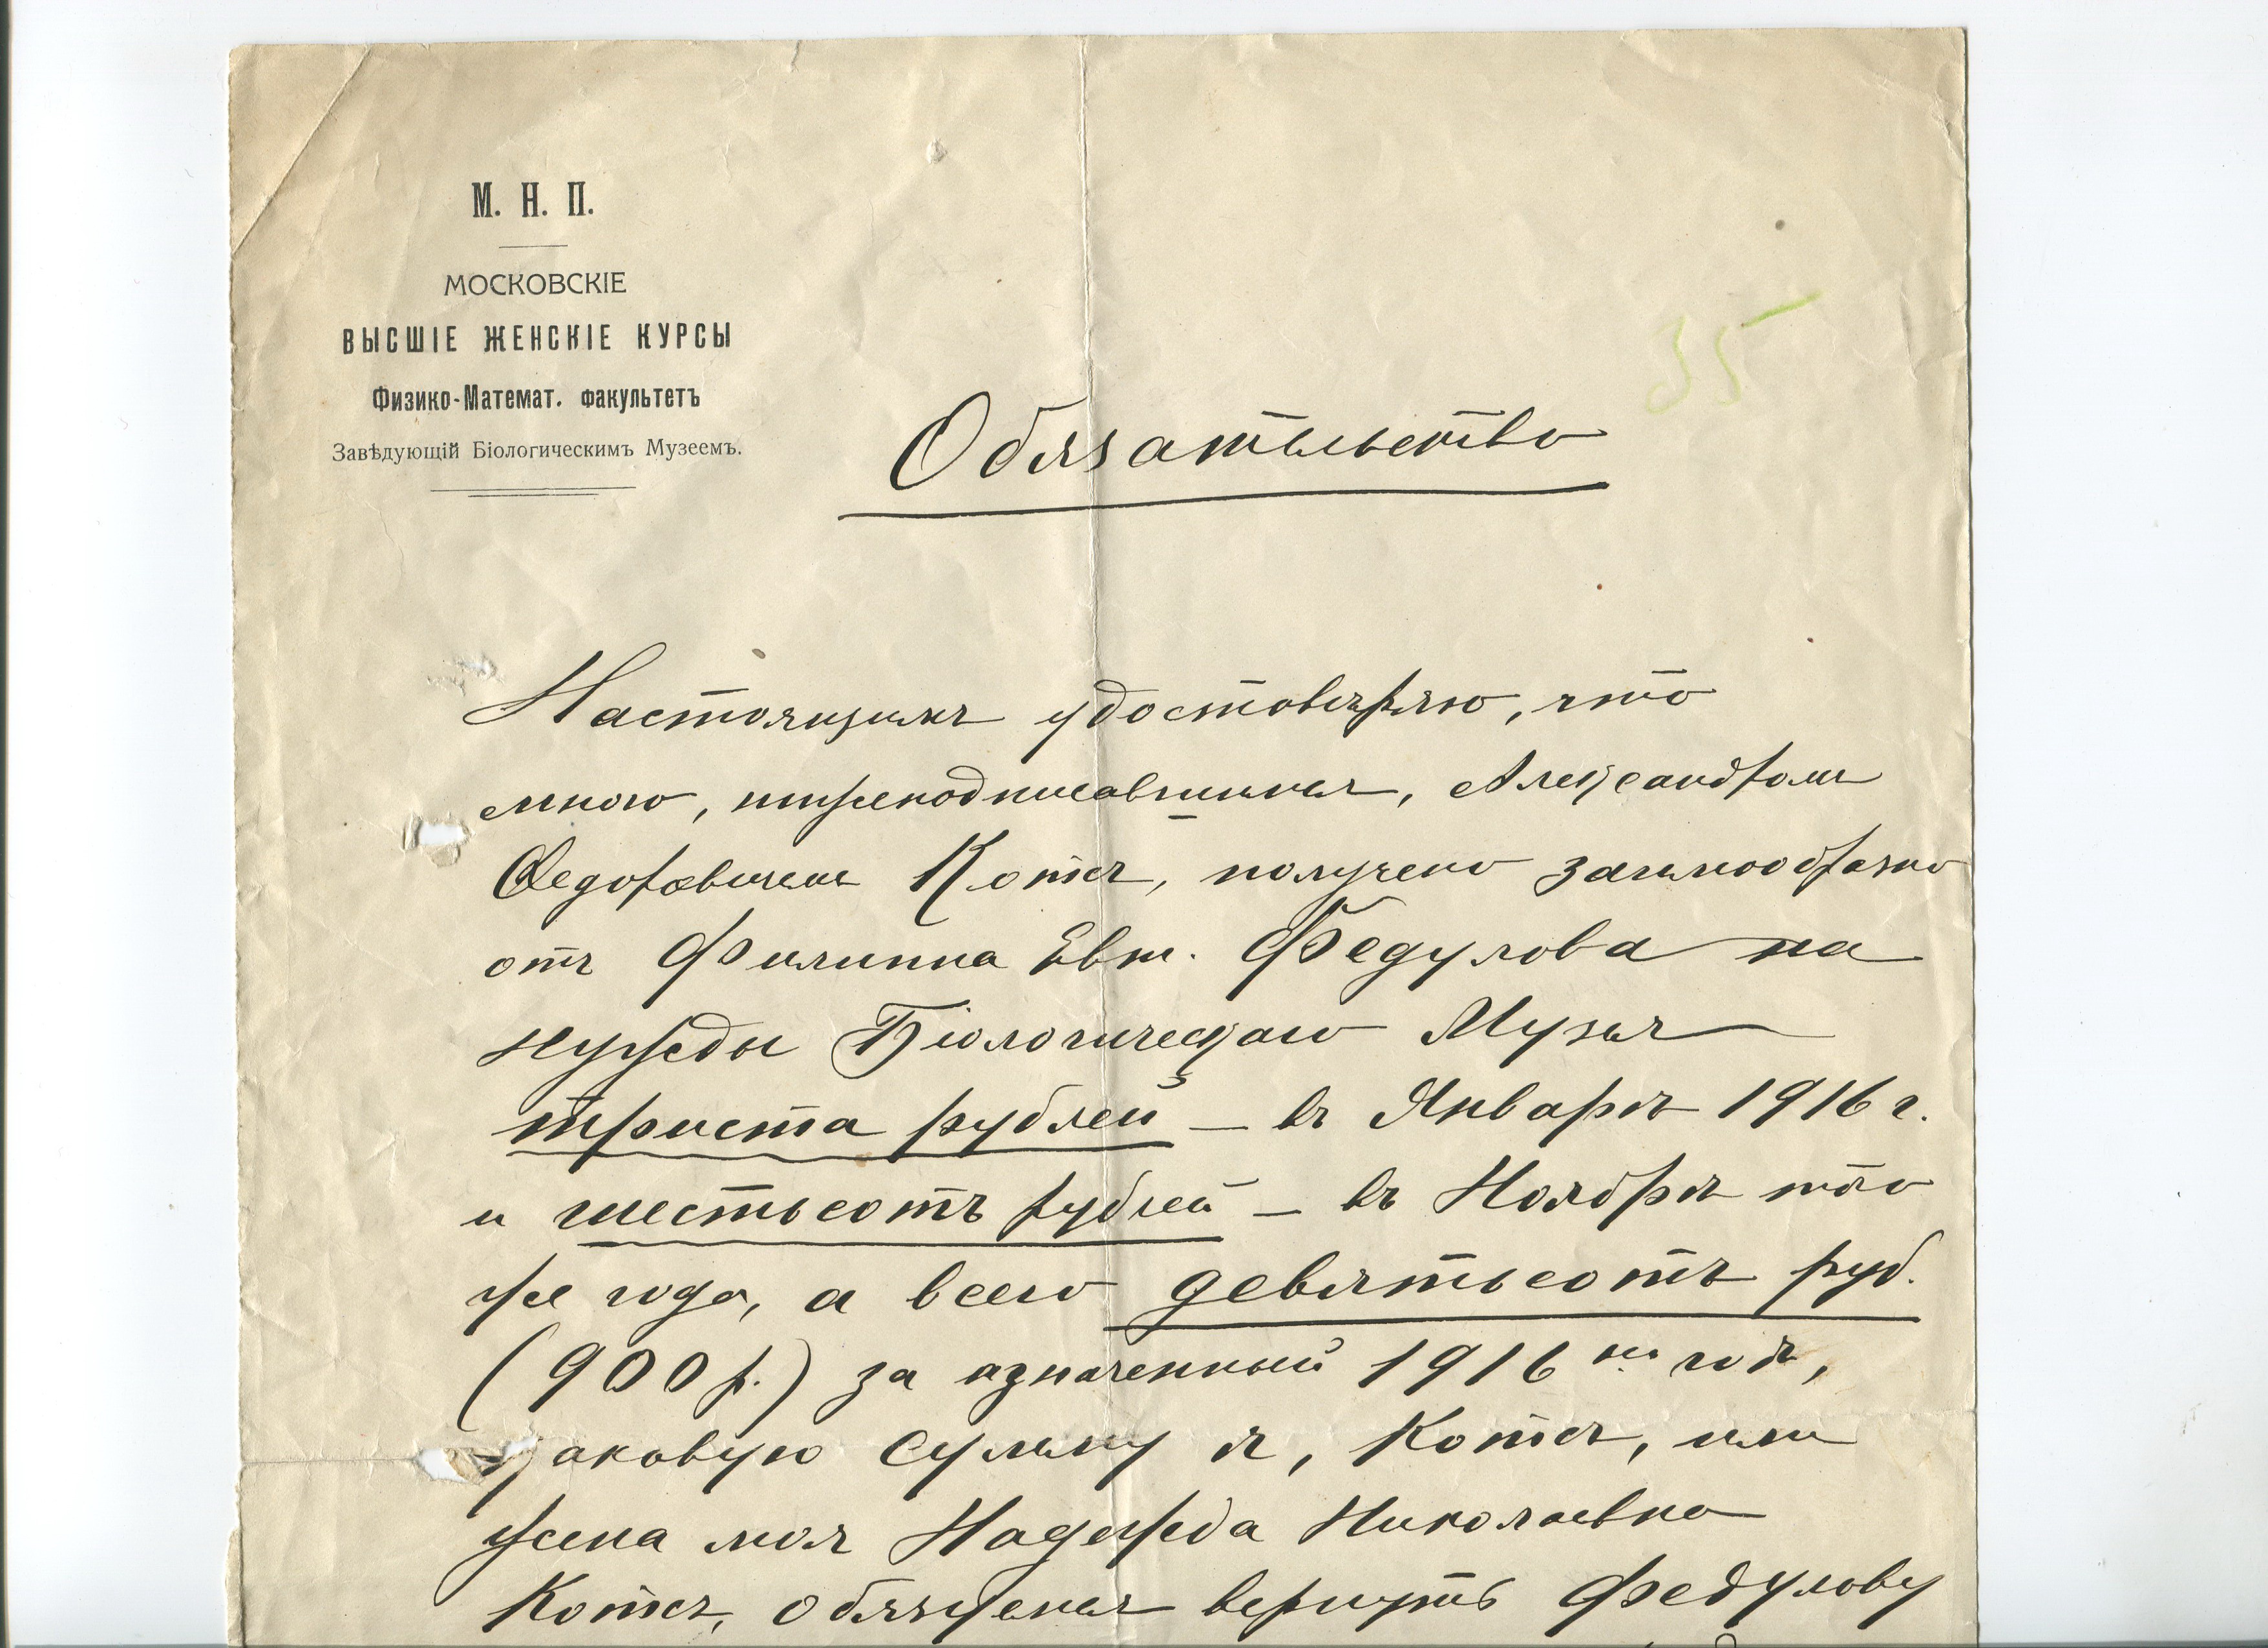 М. Н. П.
МОСКОВСКІЕ
ВЫСШІЕ ЖЕНСКІЕ КУРСЫ
Физико-Математ. факультетъ
Завѣдующій Біологическимъ Музеемъ.
35
Обязательство
Настоящимъ удостовѣряю, что
мною, нижеподписавшимся, Александромъ
Федоровичемъ Котсъ, получено заимообразно
отъ Филиппа Евт. Федулова на
нужды Біологическаго Музея
триста рублей — въ Январѣ 1916 г.
и шестьсотъ рублей — въ Ноябрѣ того
же года, а всего девятьсотъ руб.
(900 р.) за означенный 1916ый годъ,
каковую сумму я, Котсъ, или
жена моя Надежда Николаевна
Котсъ, обязуемся вернуть Федулову